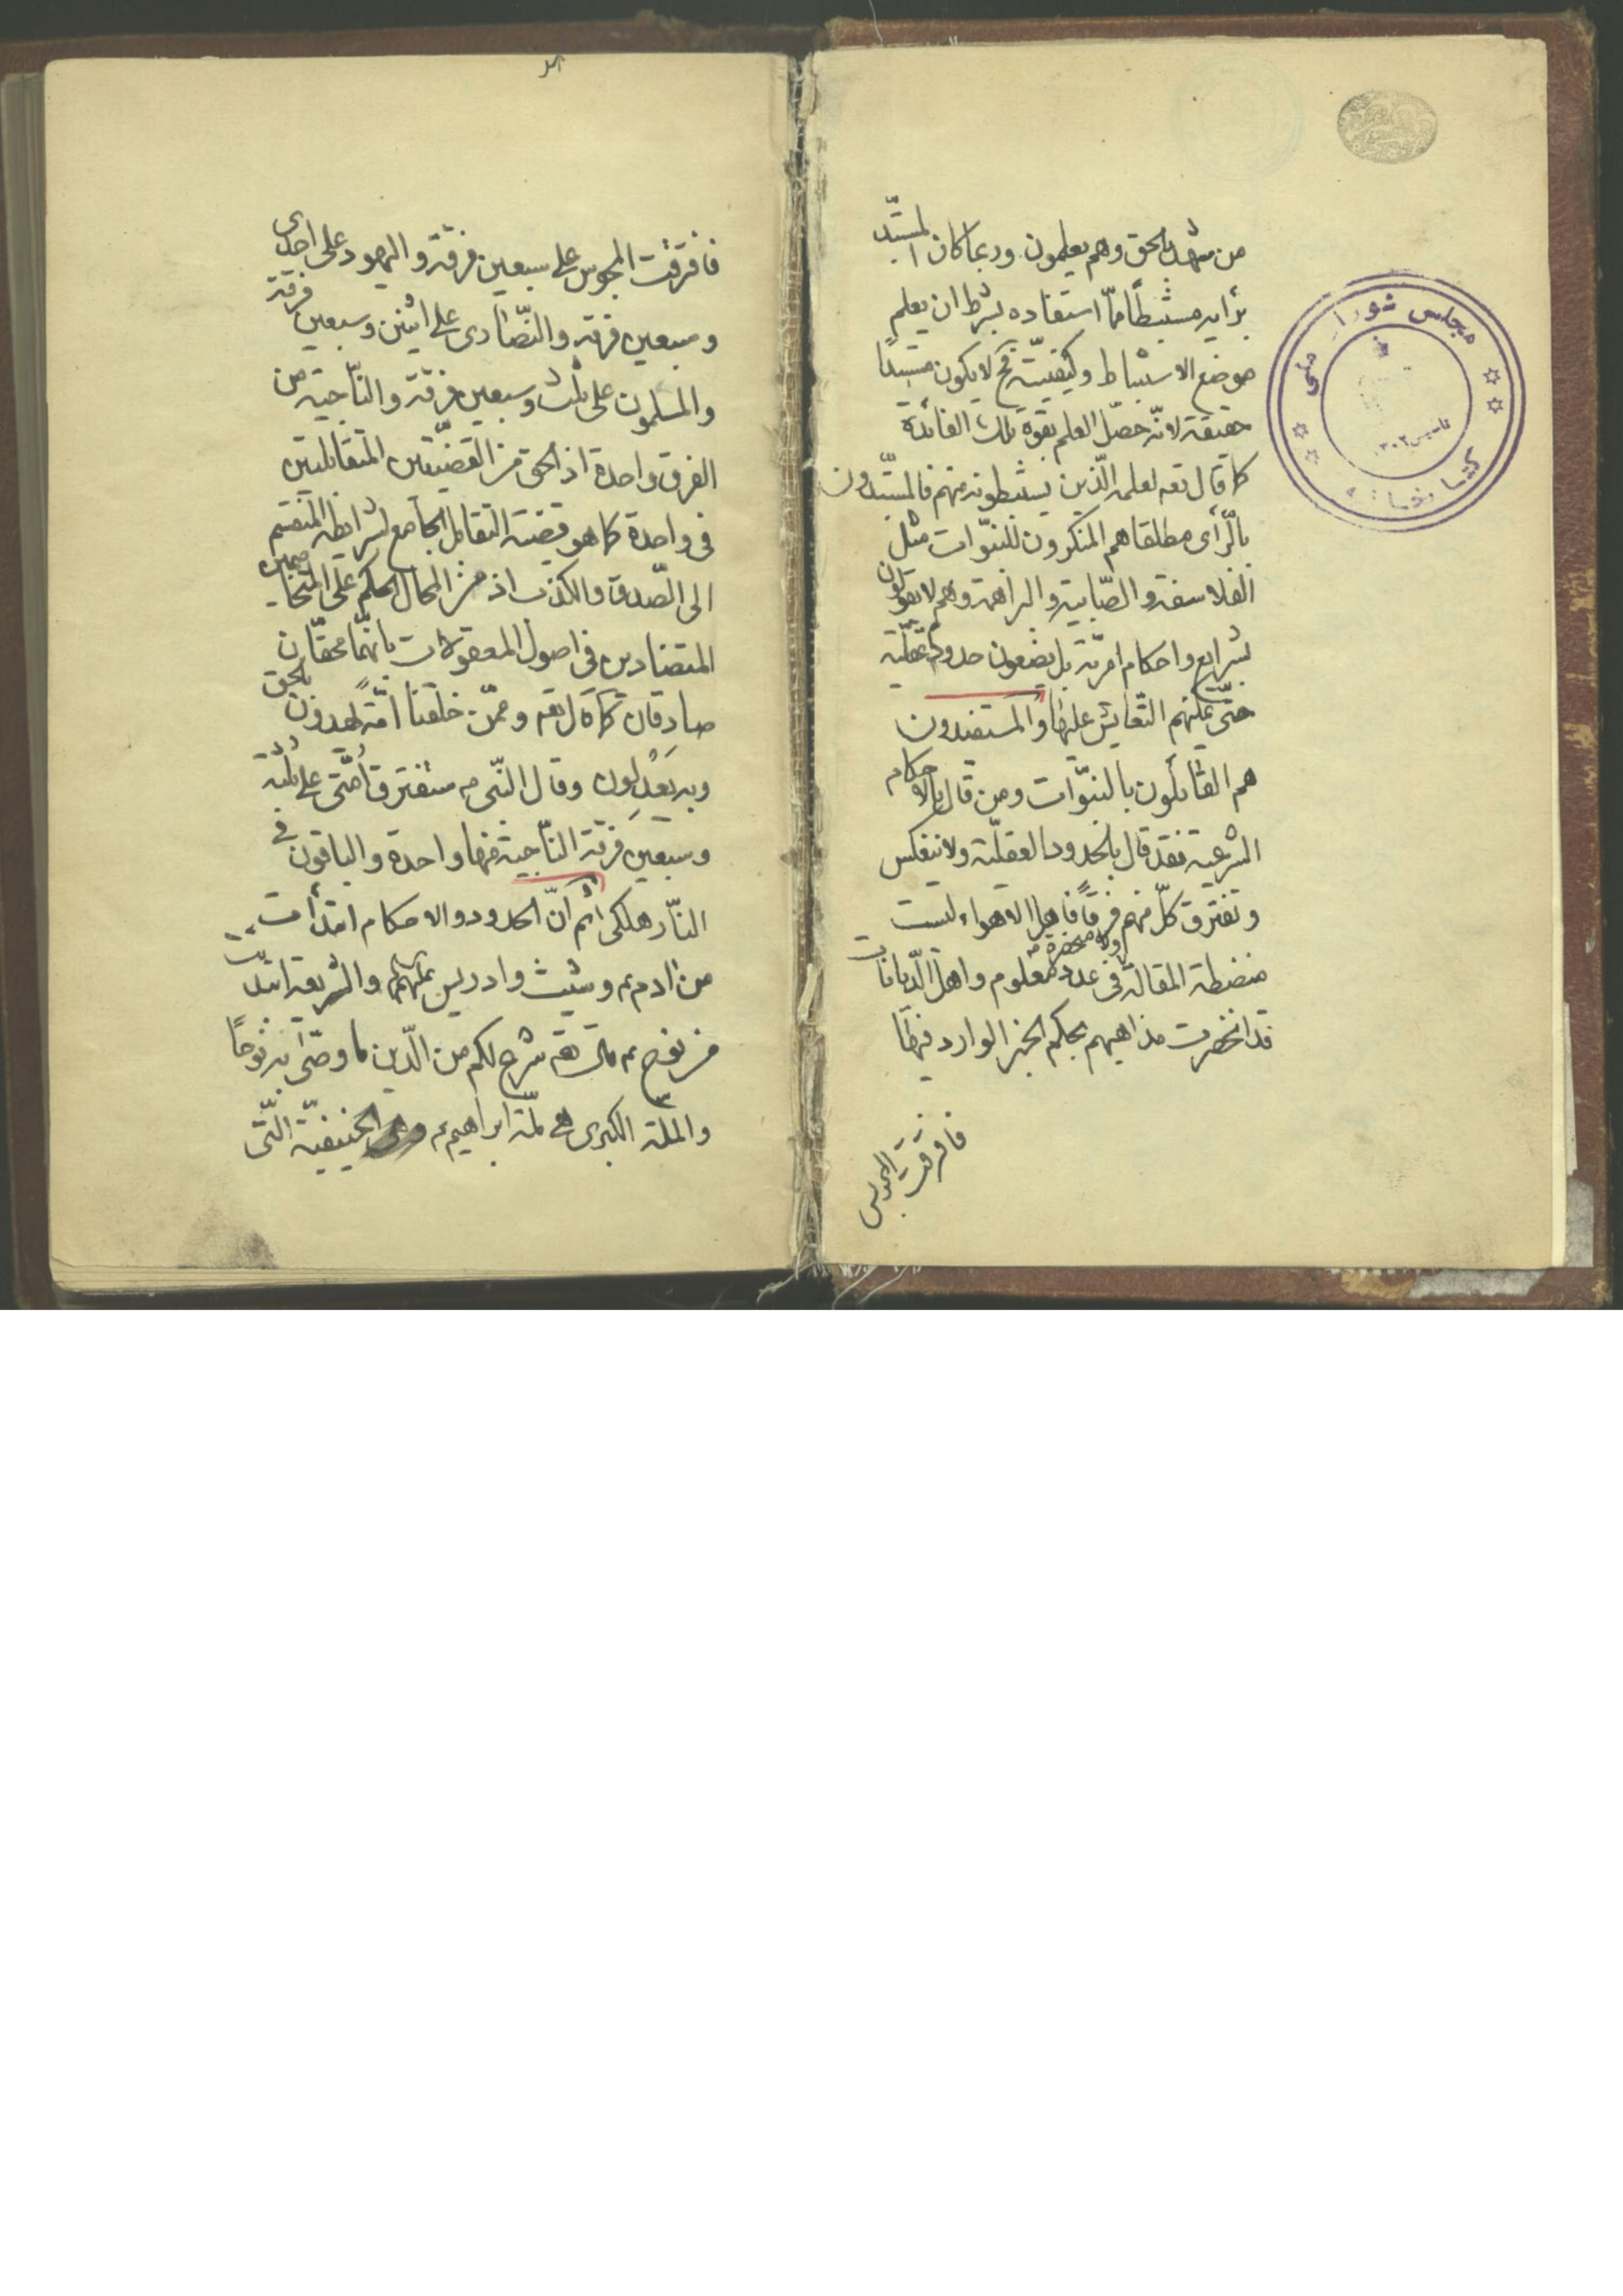 من شهد بالحق وهم يعلمون وربما كان المستبد
برأيه مستنبطا مما استفاده بشرط ان يعلم
موضع الاستنباط وكيفيته فح لا يكون مستبدا
حقيقة لانه حصل العلم بقوة تلك الفائدة
كما قال تعه لعلمه الذين يستنبطونه منهم فالمستبدون
بالرأى مطلقا هم المنكرون للنبوات مثل
الفلاسفة والصابية والبراهمة وهم لا يقولون
بشرايع واحكام امرية بل يضعون حدودا عقلية
حتى يمكنهم التعايش عليها والمستفيدون
هم القائلون بالنبوات ومن قال بالاحكام
الشرعية فقد قال بالحدود العقلية ولا ينعكس
وتفترق كل منهم فرقا فاهل الاهواء ليست
منضبطة المقالة ولا منحصرة فى عدد معلوم واهل الديانات
قد انحصرت مذاهبهم بحكم الخبر الوارد فيها
فافرقت المجوس
فافرقت المجوس على سبعين فرقة واليهود على احدى
وسبعين فرقة والنصارى على اثنين وسبعين فرقة
والمسلمون على ثلث وسبعين فرقة والناجية من
الفرق واحدة اذ الحق من القضيتين المتقابلتين
فى واحدة كما هو قضية التقابل الجامع لشرائطه المنقسم
الى الصدق والكذب اذ من المحال الحكم على المتخاصمين
المتضادين فى اصول المعقولات بانهما محقان
صادقان كما قال تعه وممن خلقنا امة يهدون بالحق
وبه يعدلون وقال النبى ص ستفترق امتى على ثلثة
وسبعين فرقة الناجية منها واحدة والباقون فى
النار هلكى ثم ان الحدود والاحكام ابتدأت
من ادم ع وشيث وادريس عليهم والشريعة ابتدأت
من نوح ع قال تعه شرع لكم من الدين ما وصى به نوحا
والملة الكبرى هى ملة ابراهيم ع وهى الحنيفية التى
مجلس شوراى ملى
كتابخانه
تاسيس ١٣٠٢